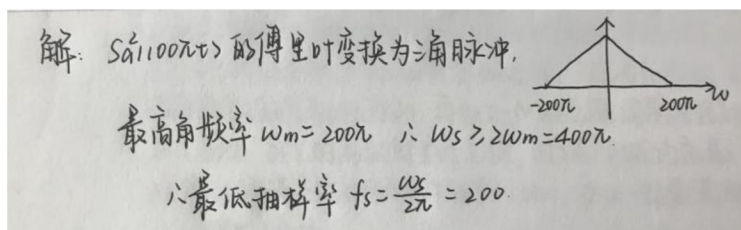 解: Sa²(100πt) 的傅里叶变换为三角脉冲.
-200π 200π ω
最高角频率 ωm=200π ∴ ωs≥2ωm=400π.
∴最低抽样率 fs=ωs/2π=200.